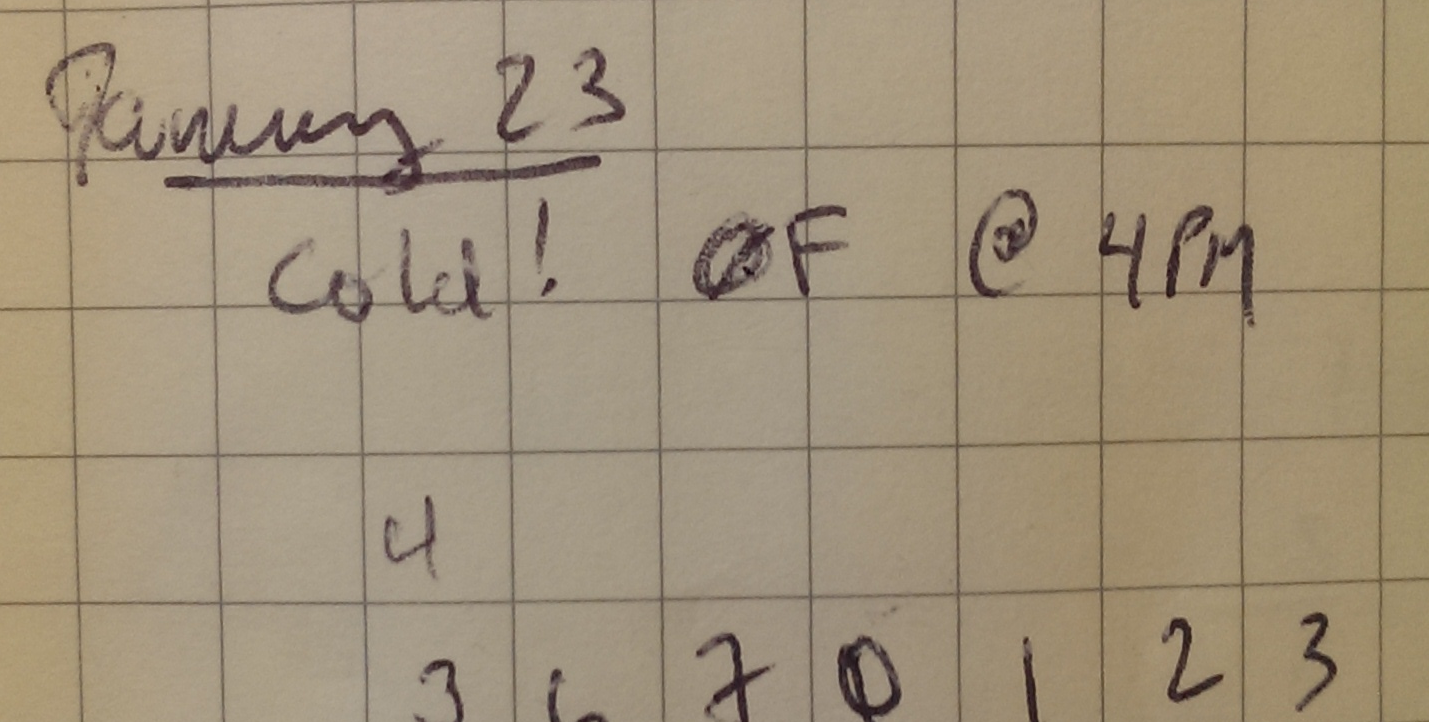 January 23
Cold! 0F @ 4PM
4
3 6 7 0 1 2 3